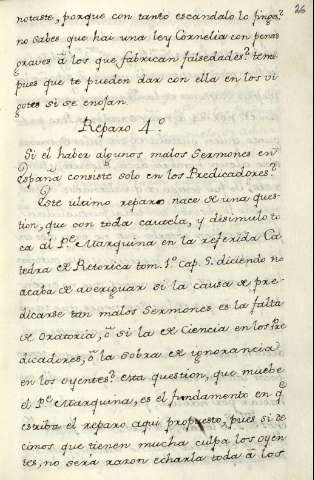 26
notaste, porque con tanto escandalo lo finges?
no sabes que hai una ley Cornelia con penas
graves â los que fabrican falsedades? teme
pues que te pueden dar con ella en los vi
gotes si se enojan.
Reparo 4.º
Si el haber algunos malos Sermones en
España consiste solo en los Predicadores?
Este ultimo reparo nace de una ques-
tion, que con toda cautela, y disimulo to
ca al P.e Marquina en la referida Ca
tedra de Retorica tom. 1.º Cap. 5. diciendo no
acaba de averiguar si la causa de pre-
dicarse tan malos Sermones es la falta
de Oratoria, ô si la de Ciencia en los Pre
dicadores, ô la sobra de ignorancia
en los oyentes? esta question, que muebe
el P.e Marquina, es el fundamento en q.e
estriba el reparo aqui propuesto, pues si de
cimos que tienen mucha culpa los oyen
tes, no será razon echarla toda â los